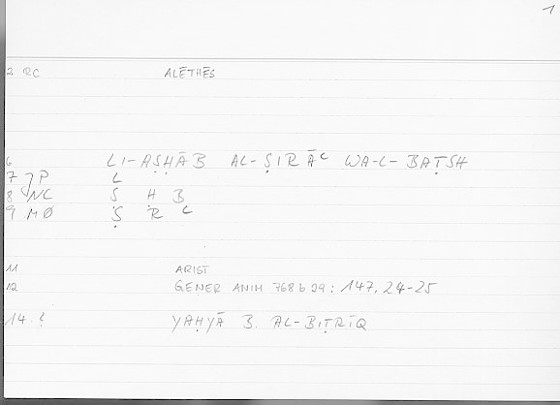 1
2 RC ALĒTHḖS
6 LI-AṢḤĀB AL-ṢIRĀʿ WA-L-BAṬSH
7 JP L
8 NC Ṣ Ḥ B
9 MØ Ṣ R ʿ
11 ARIST
12 GENER ANIM 768 b 29: 147, 24-25
14 YAḤYĀ B. AL-BIṬRĪQ